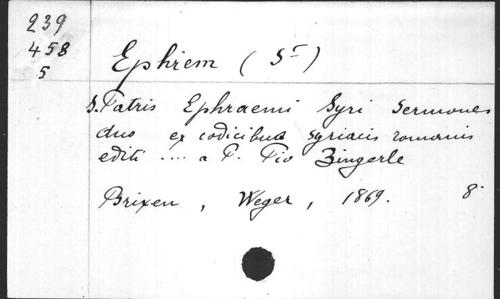 239
458
5
Ephrem (St)
S. Patris Ephraemi Syri Sermones
duo ex codicibus syriacis romanis
editi .... a P. Pio Zingerle
Brixen, Weger, 1869. 8°